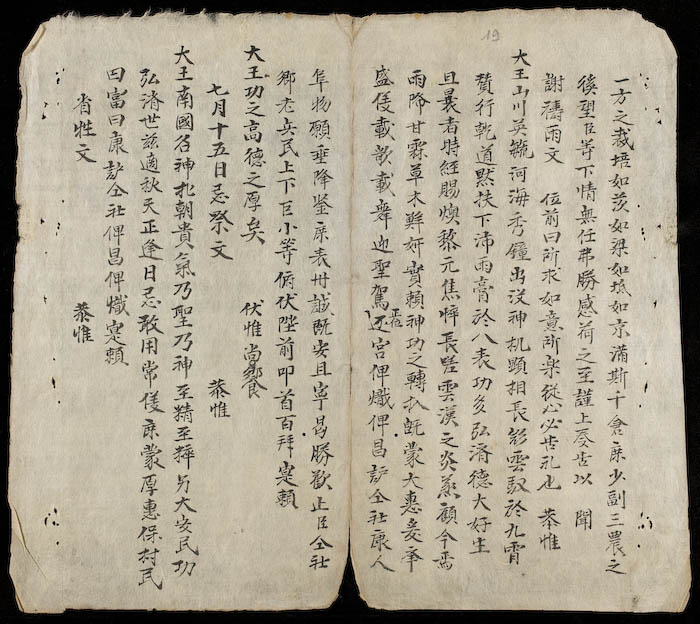 19
一方之栽培如茨如梁如坻如京滿斯千倉庶少副三農之
後望臣等下情無任弗勝感荷之至謹上奏告以聞
謝禱雨文 位前曰所求如意所樂從心必告礼也 恭惟
大王山川英毓河海秀鐘出没神机顕相長彭雲馭於九霄
賛行乾道黙扶下沛雨膏於八表功多弘済德大好生
旦晨者時經賜燠黎元焦悴長嗟雲漢之炎蒸顧今焉
雨降甘霖草木鮮妍實賴神功之轉扒既蒙大惠爰举
盛𠊎載歌載舞迎聖駕還正位宮俾熾俾昌䕶仝社康人
阜物願垂降鑒庶表卅誠既安且寧昌勝歡止臣仝社
鄉老兵民上下臣小等俯伏陛前叩首百拜寔賴
大王功之高德之厚矣 伏惟尚饗
七月十五日忌祭文 恭惟
大王南國名神北朝貴氣乃聖乃神至精至粹另大安民功
弘済世茲適秋天正逢日忌敢用常𠊎庶蒙厚惠保村民
曰富曰康䕶仝社俾昌俾熾寔賴
省牲文 恭惟